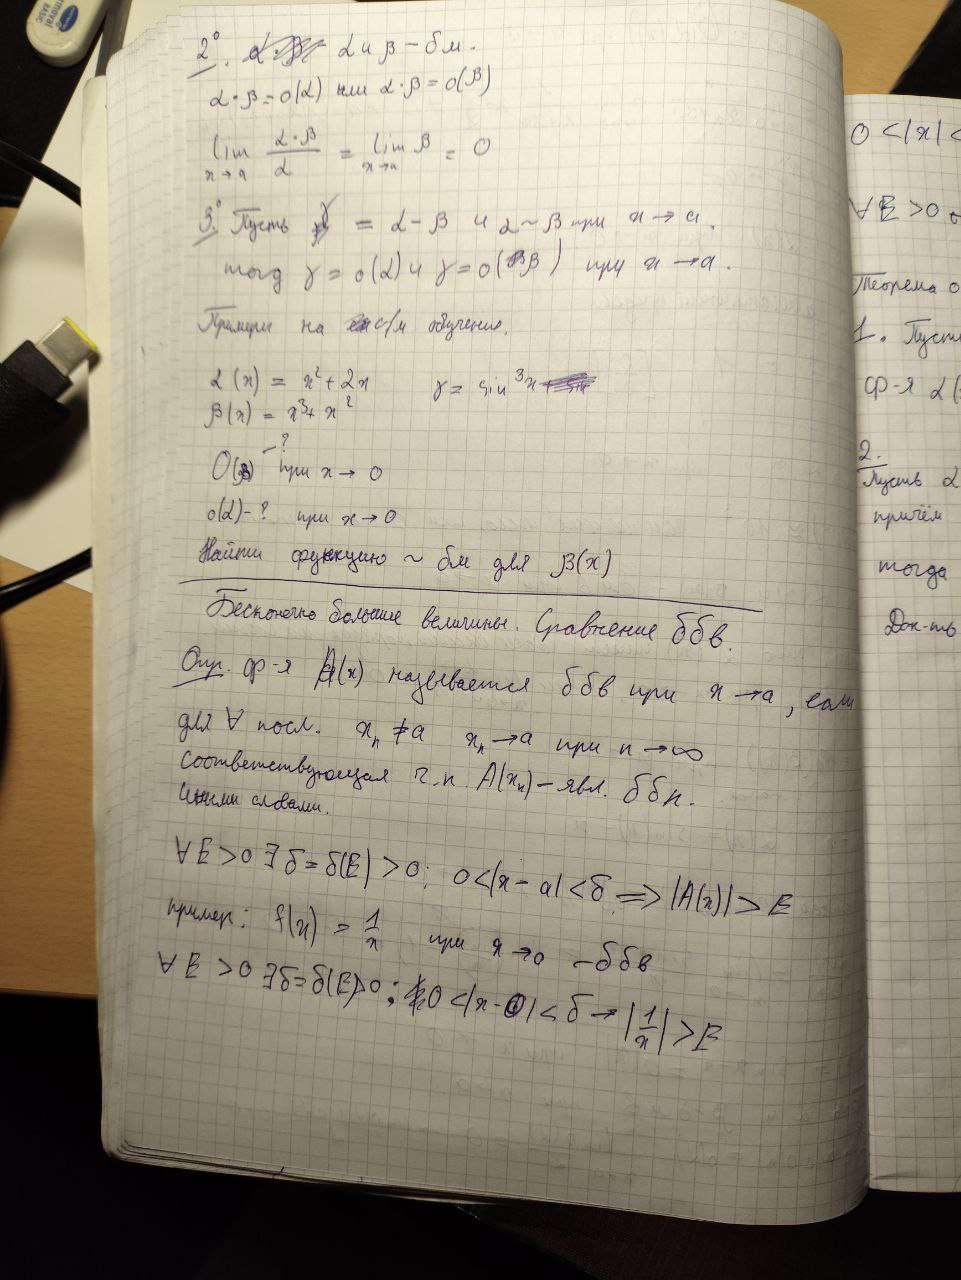 2°. α и β – бм.
α·β = o(α) или α·β = o(β)
lim x→a α·β/α = lim x→a β = 0
3°. Пусть γ = α – β и α ~ β при x → a.
тогд γ = o(α) и γ = o(β) при x → a.
Примеры на
α(x) = x² + 2x γ = sin³x
β(x) = x³ + x²
O(β) – ? при x → 0
o(α) – ? при x → 0
Найти функцию ~ бм для β(x)
Бесконечно большие величины. Сравнение ббв.
Опр. ф-я A(x) называется ббв при x → a, если
для ∀ посл. xₙ ≠ a xₙ → a при n → ∞
соответствующая ч.п. A(xₙ) – явл. ббп.
Иными словами.
∀ E > 0 ∃ δ = δ(E) > 0; 0 < |x – a| < δ ⟹ |A(x)| > E
пример: f(x) = 1/x при x → 0 – ббв
∀ E > 0 ∃ δ = δ(E) > 0; 0 < |x – 0| < δ → |1/x| > E
0 < |x| <
∀ E > 0
Теорема о
1. Пусть
ф-я α(
2.
Пусть α
причём
тогда
Док-ть